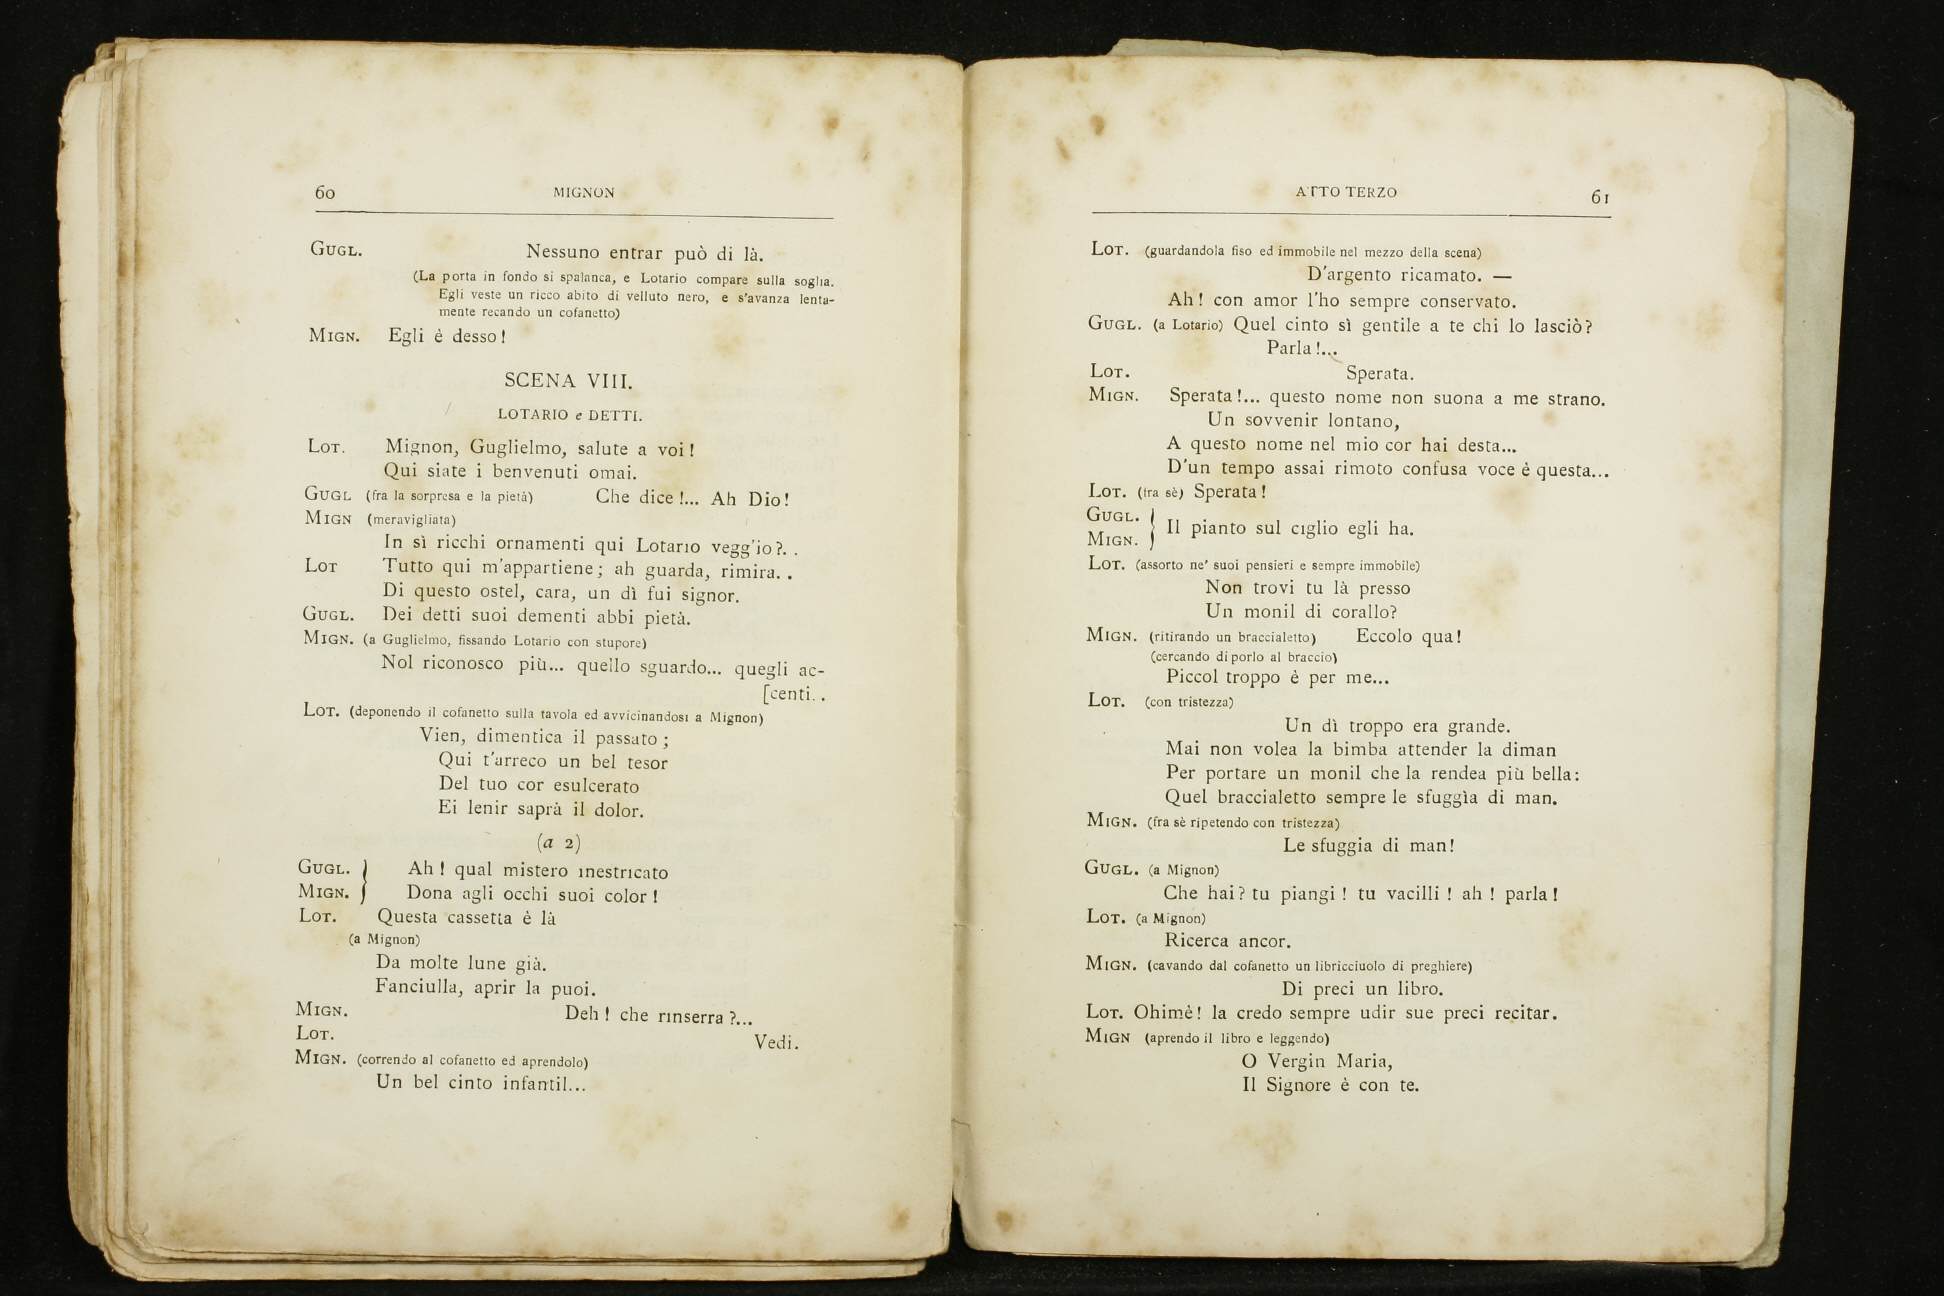 60 MIGNON
GUGL. Nessuno entrar può di là.
(La porta in fondo si spalanca, e Lotario compare sulla soglia.
Egli veste un ricco abito di velluto nero, e s'avanza lenta-
mente recando un cofanetto)
MIGN. Egli è desso!
SCENA VIII.
LOTARIO e DETTI.
LOT. Mignon, Guglielmo, salute a voi!
Qui siate i benvenuti omai.
GUGL (fra la sorpresa e la pietà) Che dice!... Ah Dio!
MIGN (meravigliata)
In sì ricchi ornamenti qui Lotario vegg'io?. .
LOT Tutto qui m'appartiene; ah guarda, rimira. .
Di questo ostel, cara, un dì fui signor.
GUGL. Dei detti suoi dementi abbi pietà.
MIGN. (a Guglielmo, fissando Lotario con stupore)
Nol riconosco più... quello sguardo... quegli ac-
[centi. .
LOT. (deponendo il cofanetto sulla tavola ed avvicinandosi a Mignon)
Vien, dimentica il passato;
Qui t'arreco un bel tesor
Del tuo cor esulcerato
Ei lenir saprà il dolor.
(a 2)
GUGL. } Ah! qual mistero inestricato
MIGN. } Dona agli occhi suoi color!
LOT. Questa cassetta è là
(a Mignon)
Da molte lune già.
Fanciulla, aprir la puoi.
MIGN. Deh! che rinserra?...
LOT. Vedi.
MIGN. (correndo al cofanetto ed aprendolo)
Un bel cinto infantil...
ATTO TERZO 61
LOT. (guardandola fiso ed immobile nel mezzo della scena)
D'argento ricamato. —
Ah! con amor l'ho sempre conservato.
GUGL. (a Lotario) Quel cinto sì gentile a te chi lo lasciò?
Parla!...
LOT. Sperata.
MIGN. Sperata!... questo nome non suona a me strano.
Un sovvenir lontano,
A questo nome nel mio cor hai desta...
D'un tempo assai rimoto confusa voce è questa...
LOT. (fra sè) Sperata!
GUGL. }
MIGN. } Il pianto sul ciglio egli ha.
LOT. (assorto ne' suoi pensieri e sempre immobile)
Non trovi tu là presso
Un monil di corallo?
MIGN. (ritirando un braccialetto) Eccolo qua!
(cercando di porlo al braccio)
Piccol troppo è per me...
LOT. (con tristezza)
Un dì troppo era grande.
Mai non volea la bimba attender la diman
Per portare un monil che la rendea più bella:
Quel braccialetto sempre le sfuggìa di man.
MIGN. (fra sè ripetendo con tristezza)
Le sfuggia di man!
GUGL. (a Mignon)
Che hai? tu piangi! tu vacilli! ah! parla!
LOT. (a Mignon)
Ricerca ancor.
MIGN. (cavando dal cofanetto un libricciuolo di preghiere)
Di preci un libro.
LOT. Ohimè! la credo sempre udir sue preci recitar.
MIGN (aprendo il libro e leggendo)
O Vergin Maria,
Il Signore è con te.